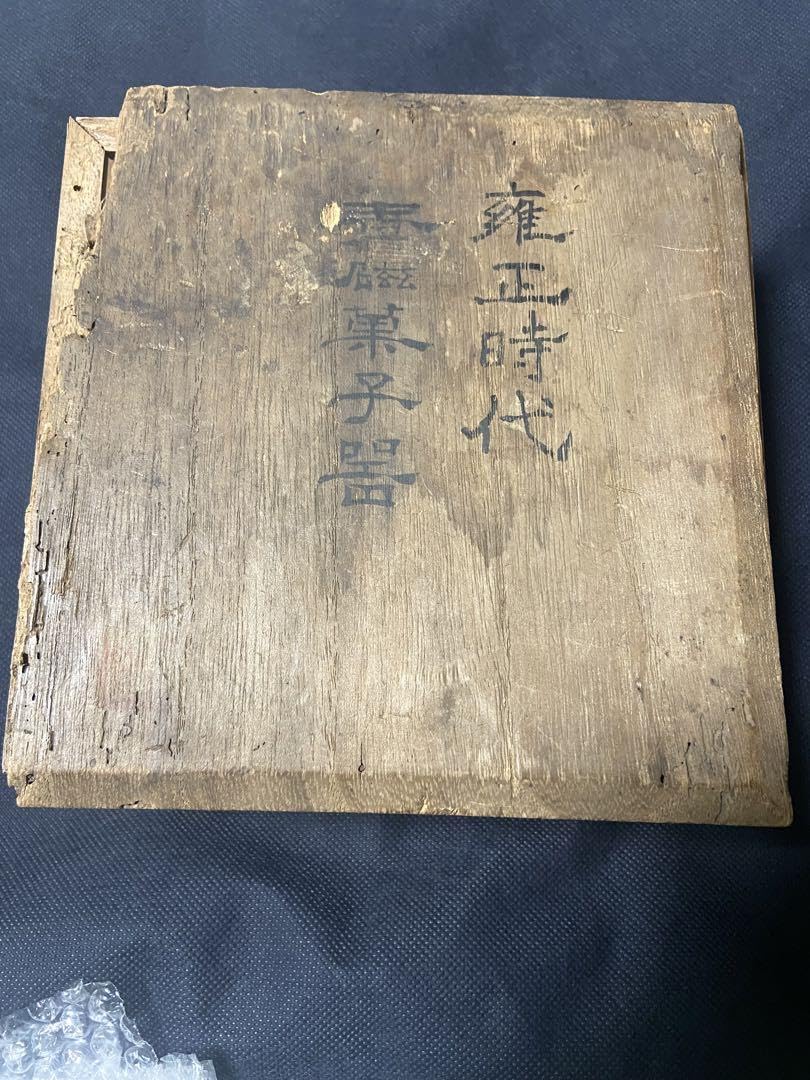 雍正時代
青磁菓子器